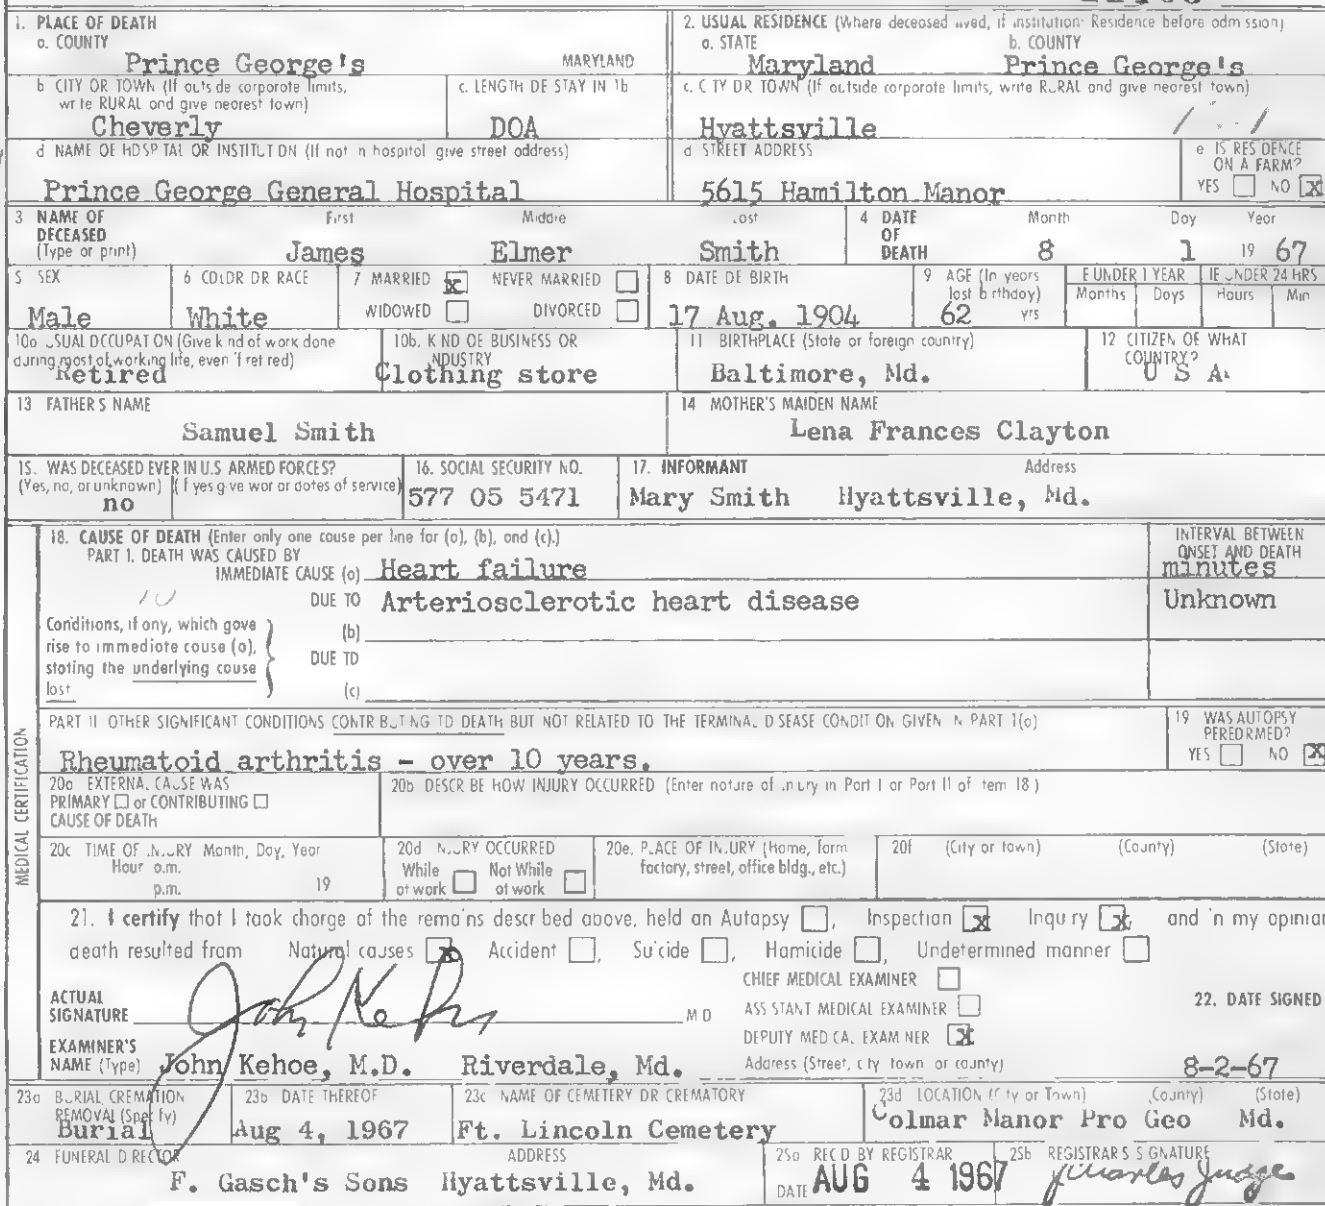 1. PLACE OF DEATH
a. COUNTY
Prince George's MARYLAND
2. USUAL RESIDENCE (Where deceased lived, if institution: Residence before admission)
a. STATE b. COUNTY
Maryland Prince George's
b CITY OR TOWN (If outside corporate limits, write RURAL and give nearest town)
Cheverly
c. LENGTH OF STAY IN 1b
DOA
c. CITY OR TOWN (If outside corporate limits, write RURAL and give nearest town)
Hyattsville
d NAME OF HOSPITAL OR INSTITUTION (If not in hospital give street address)
Prince George General Hospital
d STREET ADDRESS
5615 Hamilton Manor
e IS RESIDENCE ON A FARM?
YES NO X
3 NAME OF DECEASED (Type or print)
First Middle Last
James Elmer Smith
4 DATE OF DEATH
Month Day Year
8 1 19 67
5 SEX
Male
6 COLOR OR RACE
White
7 MARRIED x NEVER MARRIED
WIDOWED DIVORCED
8 DATE OF BIRTH
17 Aug. 1904
9 AGE (In years last birthday)
62 yrs
IF UNDER 1 YEAR IF UNDER 24 HRS
Months Days Hours Min
10a USUAL OCCUPATION (Give kind of work done during most of working life, even if retired)
Retired
10b. KIND OF BUSINESS OR INDUSTRY
Clothing store
11 BIRTHPLACE (State or foreign country)
Baltimore, Md.
12 CITIZEN OF WHAT COUNTRY?
U S A.
13 FATHER'S NAME
Samuel Smith
14 MOTHER'S MAIDEN NAME
Lena Frances Clayton
15. WAS DECEASED EVER IN U.S. ARMED FORCES?
(Yes, no, or unknown) (If yes give war or dates of service)
no
16. SOCIAL SECURITY NO.
577 05 5471
17. INFORMANT Address
Mary Smith Hyattsville, Md.
MEDICAL CERTIFICATION
18. CAUSE OF DEATH (Enter only one cause per line for (a), (b), and (c).)
PART I. DEATH WAS CAUSED BY
IMMEDIATE CAUSE (a) Heart failure
INTERVAL BETWEEN ONSET AND DEATH
minutes
DUE TO Arteriosclerotic heart disease Unknown
Conditions, if any, which gave rise to immediate cause (a), stating the underlying cause last
(b)
DUE TO
(c)
PART II OTHER SIGNIFICANT CONDITIONS CONTRIBUTING TO DEATH BUT NOT RELATED TO THE TERMINAL DISEASE CONDITION GIVEN IN PART I(a)
Rheumatoid arthritis - over 10 years.
19 WAS AUTOPSY PERFORMED?
YES NO X
20a EXTERNAL CAUSE WAS
PRIMARY or CONTRIBUTING
CAUSE OF DEATH
20b DESCRIBE HOW INJURY OCCURRED (Enter nature of injury in Part I or Part II of item 18)
20c TIME OF INJURY Month, Day, Year
Hour a.m.
p.m. 19
20d INJURY OCCURRED
While at work Not While at work
20e. PLACE OF INJURY (Home, farm factory, street, office bldg., etc.)
20f (City or town) (County) (State)
21. I certify that I took charge of the remains described above, held an Autopsy , Inspection x Inquiry x, and in my opinion
death resulted from Natural causes x Accident , Suicide , Homicide , Undetermined manner
CHIEF MEDICAL EXAMINER
ACTUAL SIGNATURE John Kehoe M D
ASSISTANT MEDICAL EXAMINER
DEPUTY MEDICAL EXAMINER x
22. DATE SIGNED
EXAMINER'S NAME (Type) John Kehoe, M.D. Riverdale, Md.
Address (Street, city town or county)
8-2-67
23a BURIAL, CREMATION REMOVAL (Specify)
Burial
23b DATE THEREOF
Aug 4, 1967
23c NAME OF CEMETERY OR CREMATORY
Ft. Lincoln Cemetery
23d LOCATION (City or Town) (County) (State)
Colmar Manor Pro Geo Md.
24 FUNERAL DIRECTOR ADDRESS
F. Gasch's Sons Hyattsville, Md.
25a REC'D BY REGISTRAR
DATE AUG 4 1967
25b REGISTRAR'S SIGNATURE
Charles Judge